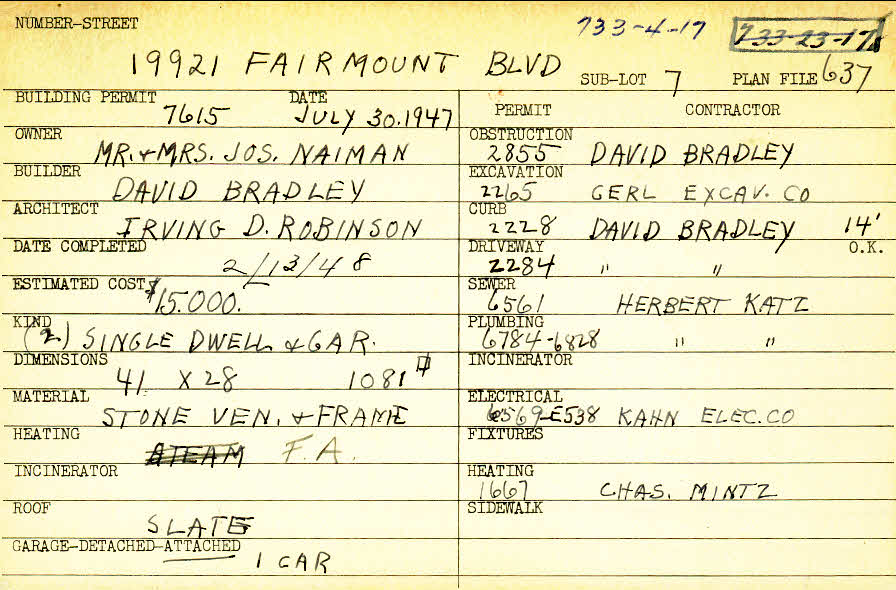 NUMBER-STREET 733-4-17 733-23-17
19921 FAIRMOUNT BLVD SUB-LOT 7 PLAN FILE 637
BUILDING PERMIT DATE PERMIT CONTRACTOR
7615 JULY 30.1947
OWNER OBSTRUCTION
MR. & MRS. JOS. NAIMAN 2855 DAVID BRADLEY
BUILDER EXCAVATION
DAVID BRADLEY 2265 GERL EXCAV. CO
ARCHITECT CURB
IRVING D. ROBINSON 2228 DAVID BRADLEY 14'
DATE COMPLETED DRIVEWAY O.K.
2/13/48 2284 " "
ESTIMATED COST SEWER
$15.000. 6561 HERBERT KATZ
KIND PLUMBING
(2) SINGLE DWELL & GAR. 6784-6828 " "
DIMENSIONS INCINERATOR
41 X 28 1081
MATERIAL ELECTRICAL
STONE VEN. & FRAME 6569-E538 KAHN ELEC.CO
HEATING FIXTURES
STEAM F.A.
INCINERATOR HEATING
1667 CHAS. MINTZ
ROOF SIDEWALK
SLATE
GARAGE-DETACHED-ATTACHED
1 CAR